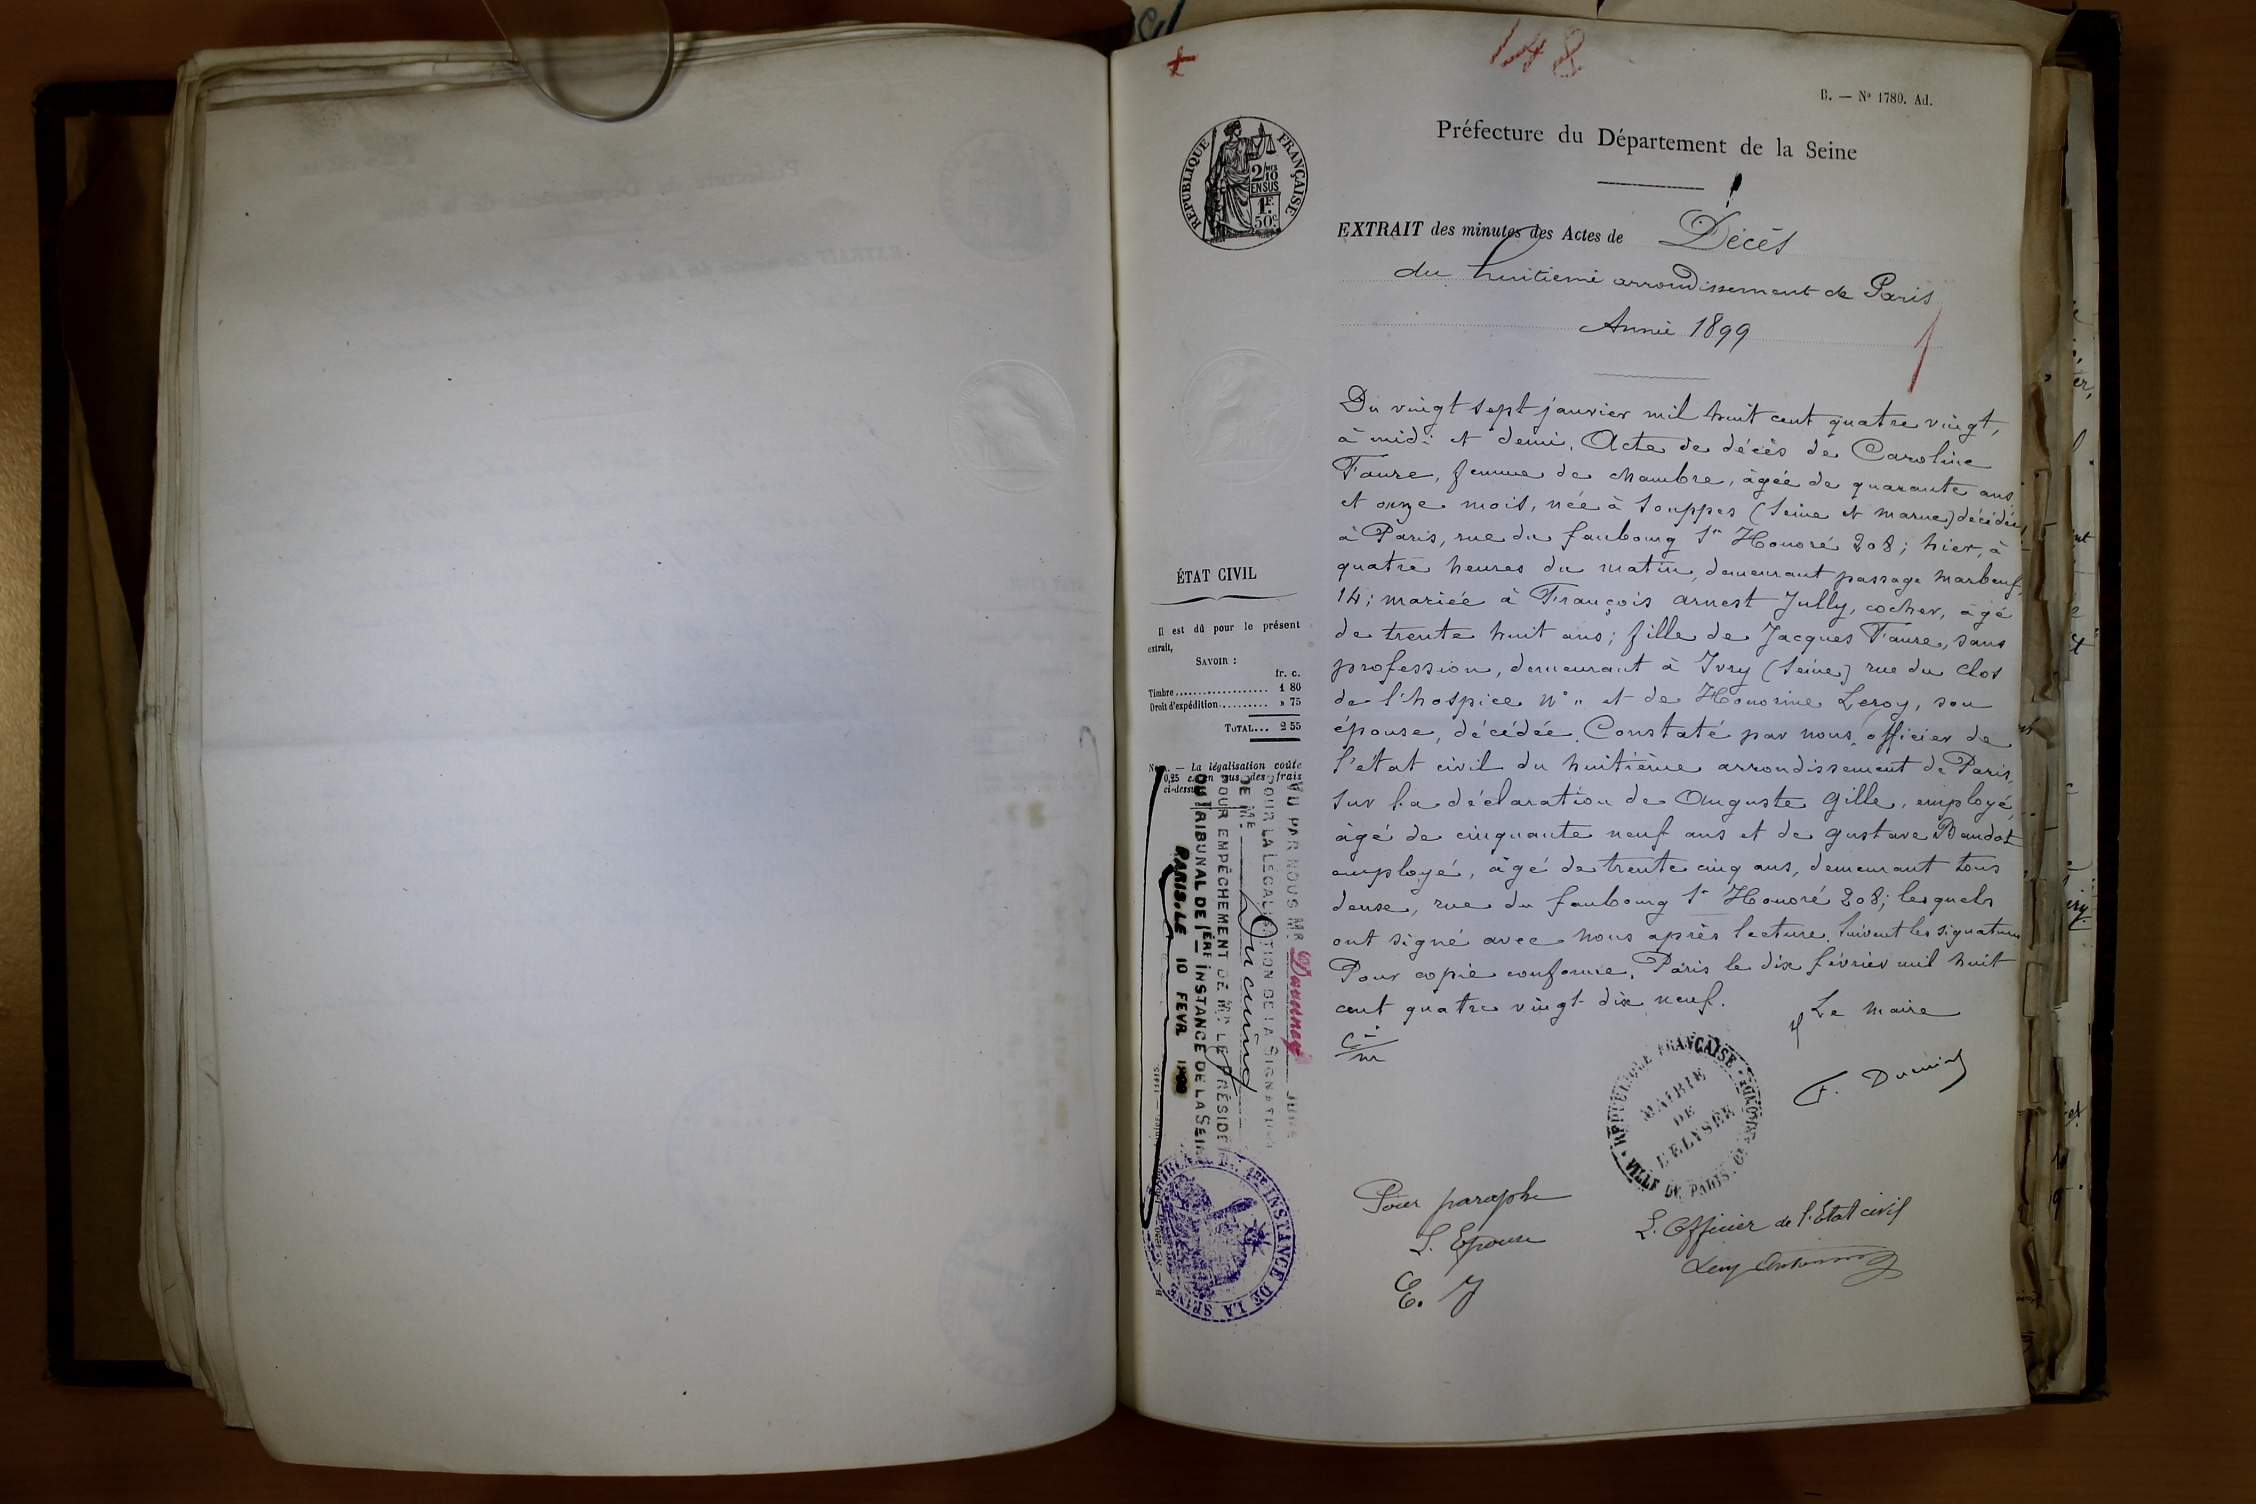 148
B. — No 1780. Ad.
Préfecture du Département de la Seine
RÉPUBLIQUE FRANÇAISE
2/10
EN SUS
1F.
50c.
EXTRAIT des minutes des Actes de Décès
du huitieme arrondissement de Paris
Année 1899
Du vingt sept janvier mil huit cent quatre vingt,
à midi et demi. Acte de décès de Caroline
Faure, femme de chambre, âgée de quarante ans
et onze mois, née à Souppes (Seine et marne) décédée
à Paris, rue du faubourg St Honoré 208; hier, à
quatre heures du matin, demeurant passage Marbeuf,
14; mariée à François arnest Jully, cocher, âgé
de trente huit ans; fille de Jacques Faure, sans
profession, demeurant à Ivry (Seine) rue du Clos
de l'hospice N° " et de Honorine Leroy, son
épouse, décédée. Constaté par nous, officier de
l'état civil du huitième arrondissement de Paris,
sur la déclaration de Auguste Gille, employé,
âgé de cinquante neuf ans et de gustave Baudot
employé, âgé de trente cinq ans, demeurant tous
deux, rue du faubourg St Honoré 208; lesquels
ont signé avec nous après lecture. Suivent les signatures
Pour copie conforme. Paris le dix février mil huit
cent quatre vingt dix neuf.
Le maire
ÉTAT CIVIL
Il est dû pour le présent
extrait,
SAVOIR :
fr. c.
Timbre................... 1 80
Droit d'expédition......... » 75
TOTAL... 2 55
— La légalisation coûte
0,25 c. en sus des frais
ci-dessus
VU PAR NOUS MR Daunay JUGE
POUR LA LÉGALISATION DE LA SIGNATURE
DE ME Ducuing
POUR EMPÊCHEMENT DE MR LE PRÉSIDENT
DU TRIBUNAL DE 1ÈRE INSTANCE DE LA SEINE
PARIS, LE 10 FEVR 1899
INSTANCE DE LA SEINE
RÉPUBLIQUE FRANÇAISE
VILLE DE PARIS
MAIRIE
DE
L'ELYSÉE
Pour paraphe
L. Epouse
E. J
L. Officier de l'Etat civil